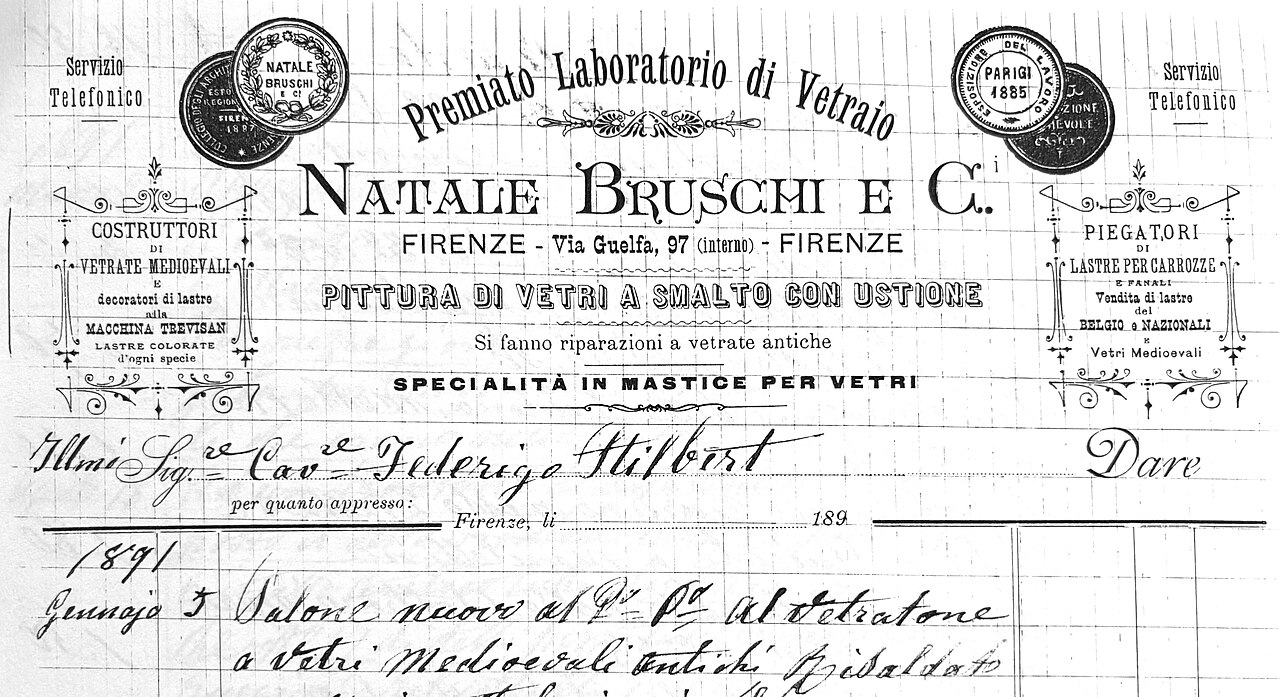 Servizio
Telefonico
NATALE
BRUSCHI
E C!
FIREN
1887
Premiato Laboratorio di Vetraio
ESPOSIZIONE DEL LAVORO
PARIGI
1885
Servizio
Telefonico
NATALE BRUSCHI E C.i
FIRENZE - Via Guelfa, 97 (interno) - FIRENZE
PITTURA DI VETRI A SMALTO CON USTIONE
Si fanno riparazioni a vetrate antiche
SPECIALITÀ IN MASTICE PER VETRI
COSTRUTTORI
DI
VETRATE MEDIOEVALI
E
decoratori di lastre
alla
MACCHINA TREVISAN
LASTRE COLORATE
d'ogni specie
PIEGATORI
DI
LASTRE PER CARROZZE
E FANALI
Vendita di lastre
del
BELGIO e NAZIONALI
E
Vetri Medioevali
Illmo Sig.re Cav.re Federigo Stilbert Dare
per quanto appresso:
Firenze, li 189
1891
Gennajo 5 Salone nuovo al Pº Pº Al Vetratone
a Vetri Medioevali antichi Risaldato